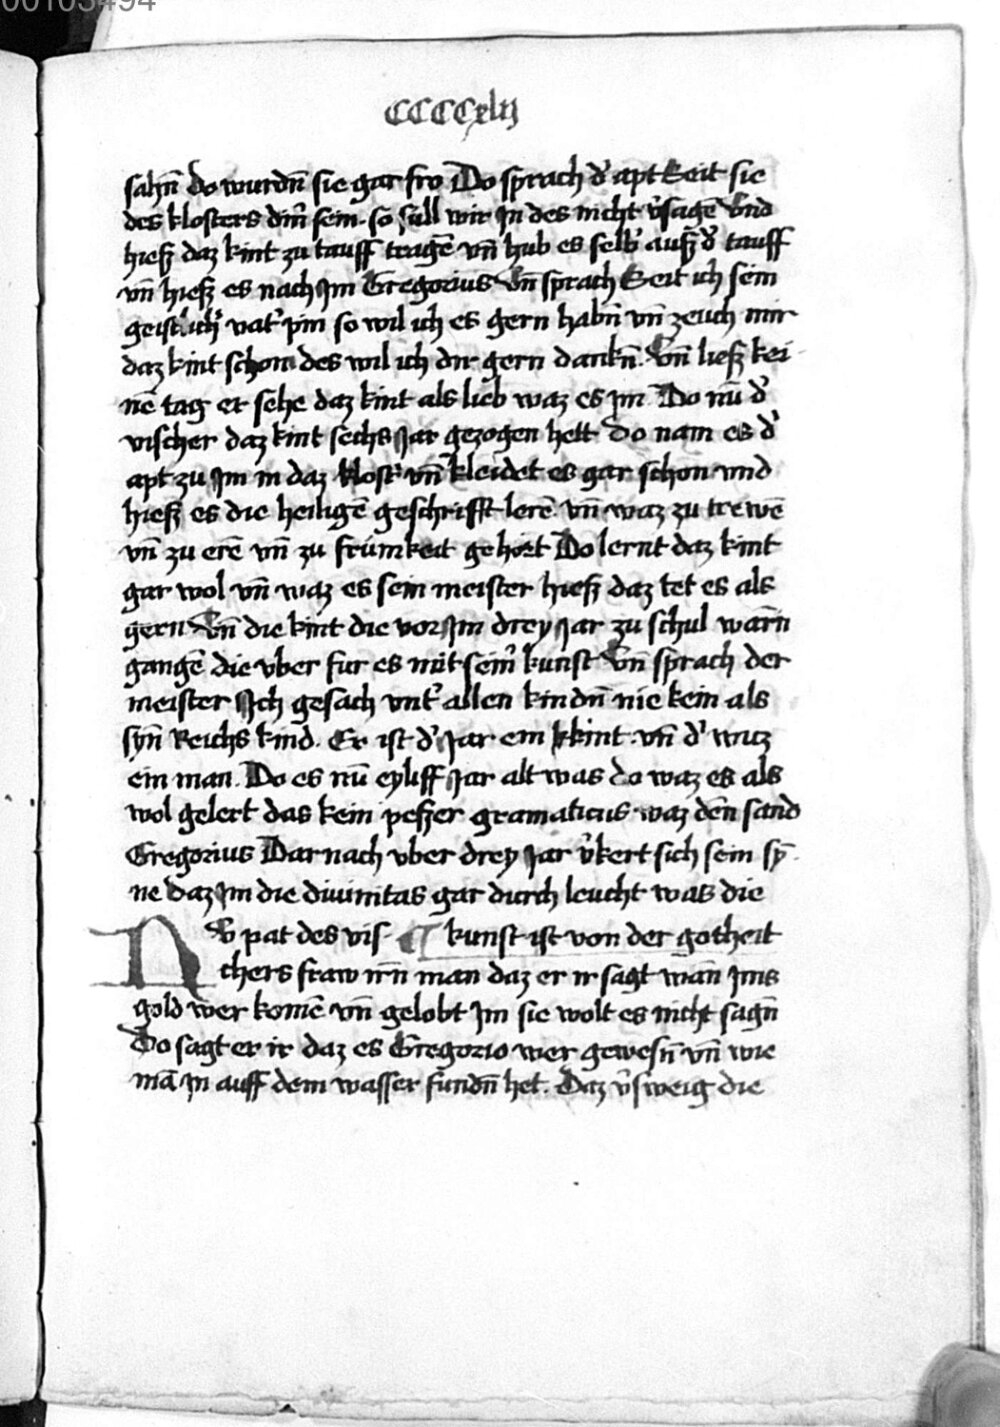 00103494
CCCCxlij
sahn̄ do wurdn̄ sie gar fro Do sprach d' apt Seit sie
des klosters din̄ sein · so sull wir Jn des nicht v'sagē Vnd
hieß daz kint zu tauff tragē vn̄ hub es selb' auß d' tauff
vn̄ hieß es nach Jm Gregorius Vn̄ sprach Seit ich sein
geistlich' vat' pin so wil ich es gern habn̄ vn̄ zeuch mir
daz kint schon des wil ich dir gern dankn̄ · Vn̄ ließ kei
nē tag er sehe daz kint als lieb waz es Jm · Do nū d'
vischer daz kint sechs Jar gezogen hett do nam es d'
apt zu Jm in daz klost' vn̄ kleidet es gar schon vnd
hieß es die heiligē geschrifft lerē · vn̄ waz zu trewē
vn̄ zu erē vn̄ zu frümkeit gehort Do lernt daz kint
gar wol vn̄ waz es sein meister hieß daz tet es als
gern Vn̄ die kint die vor Jm drey Jar zu schul warn̄
gangē die vber fur es mit seim' kunst Vn̄ sprach der
meister Jch gesach vnt' allen kindn̄ nie kein als
syn̄ Reichs kind · Er ist d' Jar ein kint · vn̄ d' witz
ein man · Do es nū eyliff Jar alt was do waz es als
wol gelert das kein peßer gramaticus waz den̄ sand
Gregorius Dar nach vber drey Jar v'kert sich sein sȳ
ne daz Jm die diuinitas gar durch leucht was die
NV pat des vis ¶ kunst ist von der gotheit
chers fraw irn̄ man daz er ir sagt wan̄ Jms
gold wer komē vn̄ gelobt Jm sie wolt es nicht sagn̄
Do sagt er ir daz es Gregorio wer gewesn̄ vn̄ wie
mā Jn auff dem wasser fundn̄ het · Daz v'sweig die